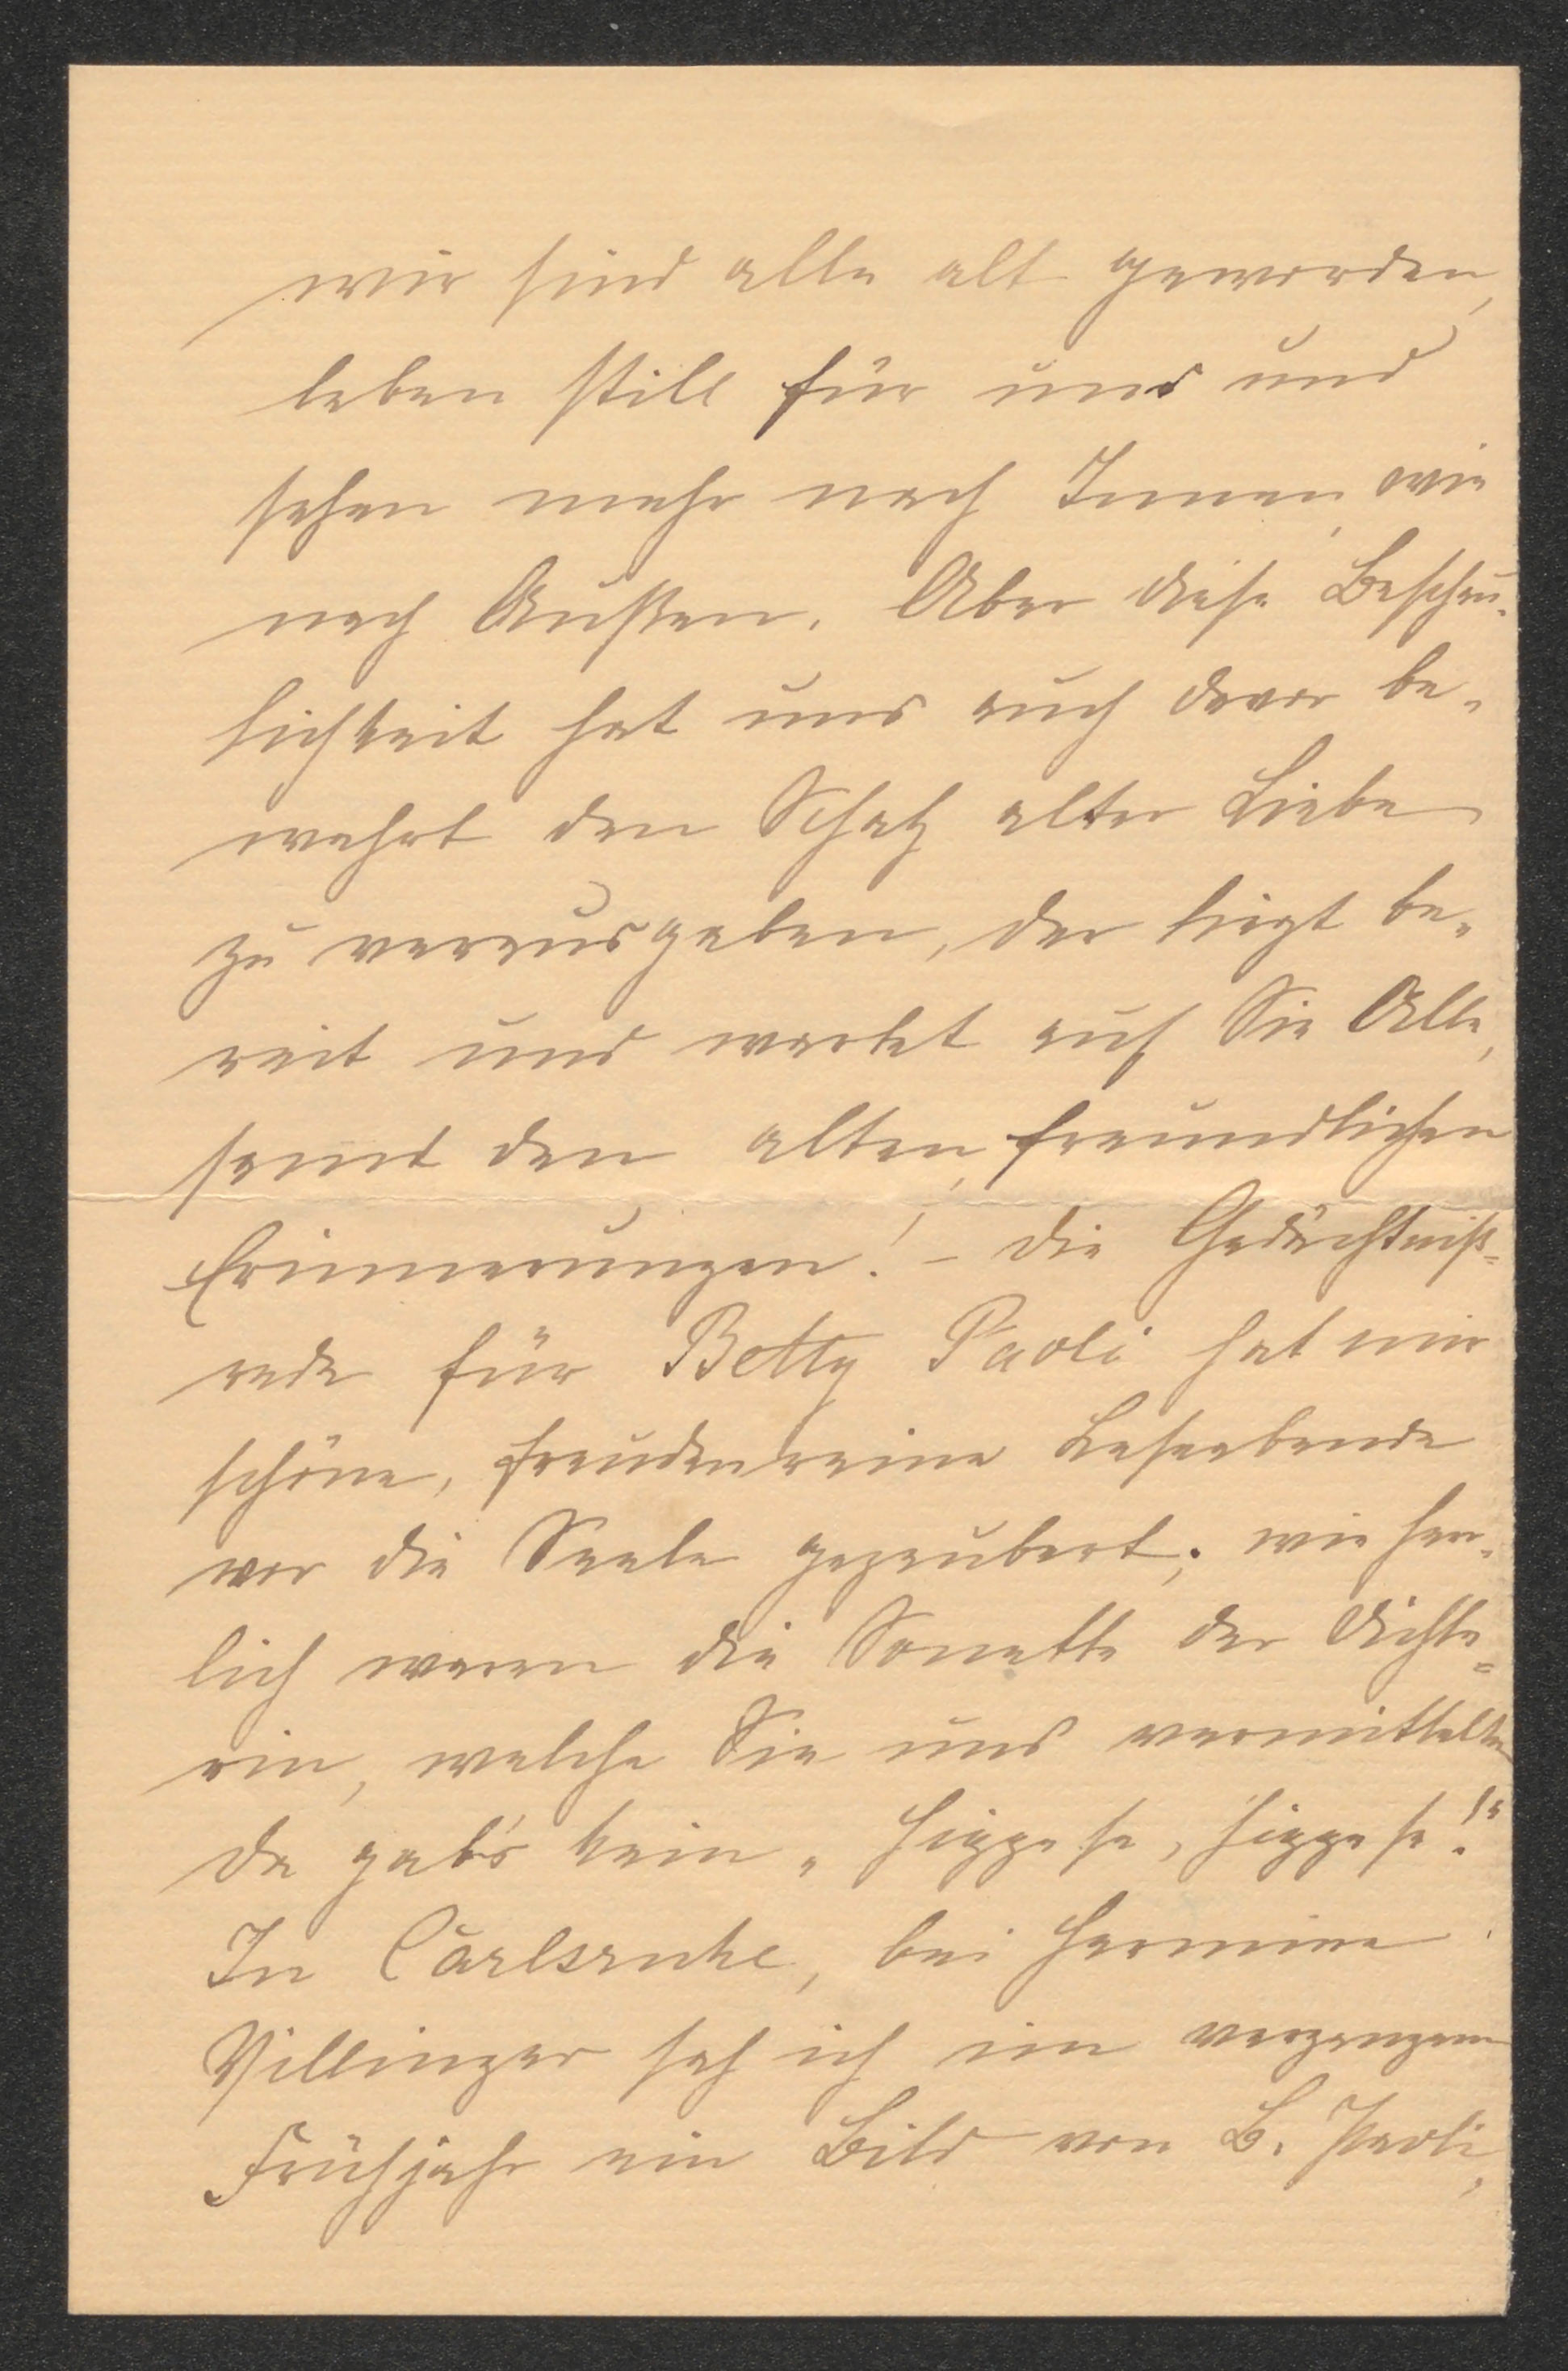 wir sind alle alt geworden,
leben still für uns und
sehen mehr nach Innen, wie
nach Außen. Aber diese Beschau-
lichkeit hat uns auch davor be-
wahrt den Schatz alter Liebe
zu verausgaben, der liegt be-
reit und wartet auf Sie Alle,
samt den alten, freundlichen
Erinnerungen! – Die Gedächtniß-
rede für Betty Paoli hat mir
schöne, freudenreine Leseabende
vor die Seele gezaubert; wie herr-
lich waren die Sonette der Dichte-
rin, welche Sie uns vermittelten
da gab's kein
In Carlsruhe, bei Hermine
Villinger sah ich im vergangenen
Frühjahr ein Bild von B. Paoli,